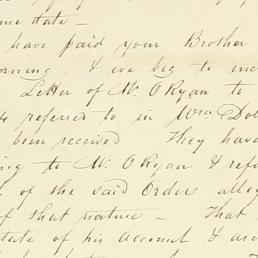 same date —
have paid your Brother
orning. & we beg to enc
Letter of Mr. O'Ryan to
referred to in Wm Dob
been received. They have
ing to Mr. O'Ryan & refe
of the said Order alleg
of that nature — That
tate of his Account & as